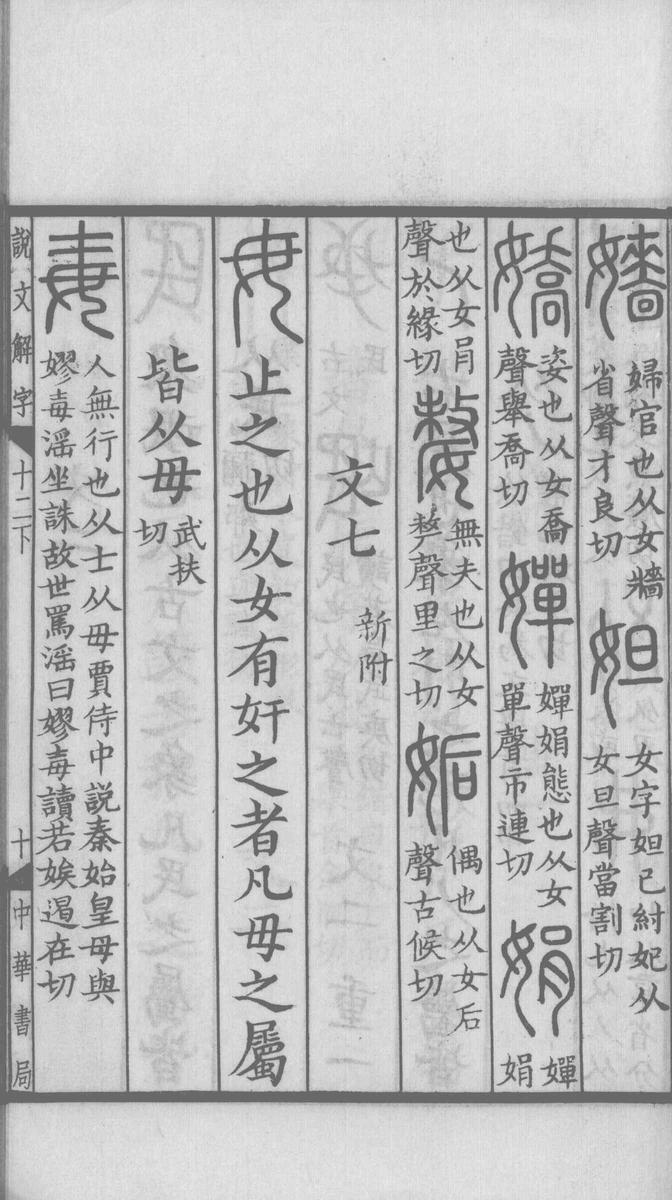 嬙婦官也从女牆省聲才良切妲女字妲己紂妃从女旦聲當割切
嬌姿也从女喬聲舉喬切嬋嬋娟態也从女單聲市連切娟嬋娟
也从女肙聲於緣切嫠無夫也从女𠩺聲里之切姤偶也从女后聲古候切
文七 新附
毋止之也从女有奸之者凡毋之屬
皆从毋武扶切
毐人無行也从士从毋賈侍中說秦始皇母與嫪毐淫坐誅故世罵淫曰嫪毐讀若娭遏在切
說文解字 十二下 十 中華書局